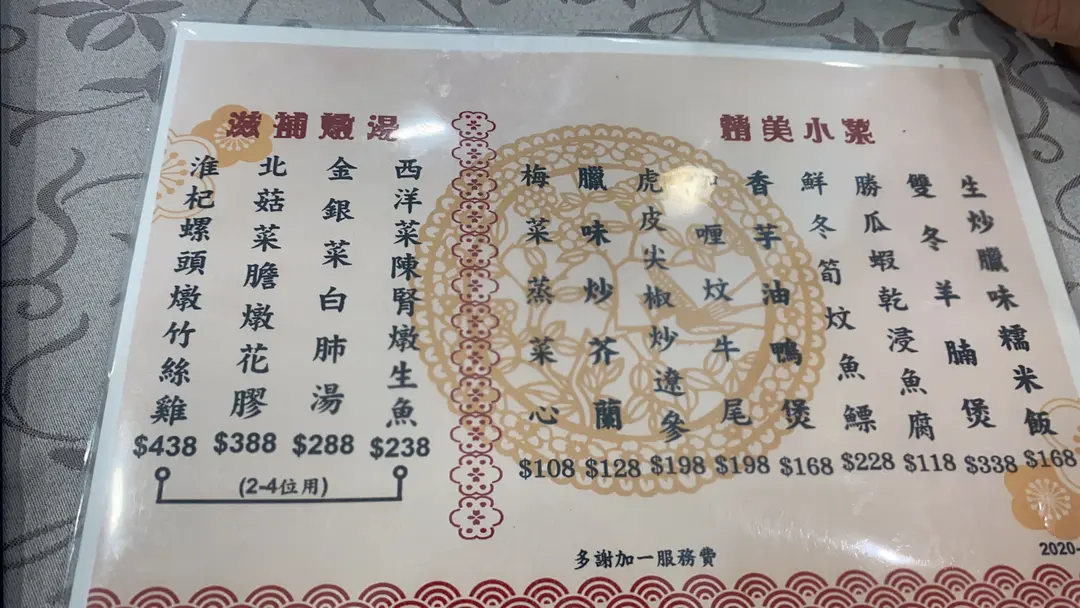 精美小菜
生炒臘味糯米飯
$168
雙冬羊腩煲
$338
勝瓜蝦乾浸魚腐
$118
鮮冬筍炆魚鰾
$228
香芋油鴨煲
$168
喱炆牛尾
$198
虎皮尖椒炒遼參
$198
臘味炒芥蘭
$128
梅菜蒸菜心
$108
滋補燉湯
西洋菜陳腎燉生魚
$238
金銀菜白肺湯
$288
北菇菜膽燉花膠
$388
淮杞螺頭燉竹絲雞
$438
(2-4位用)
多謝加一服務費
2020-